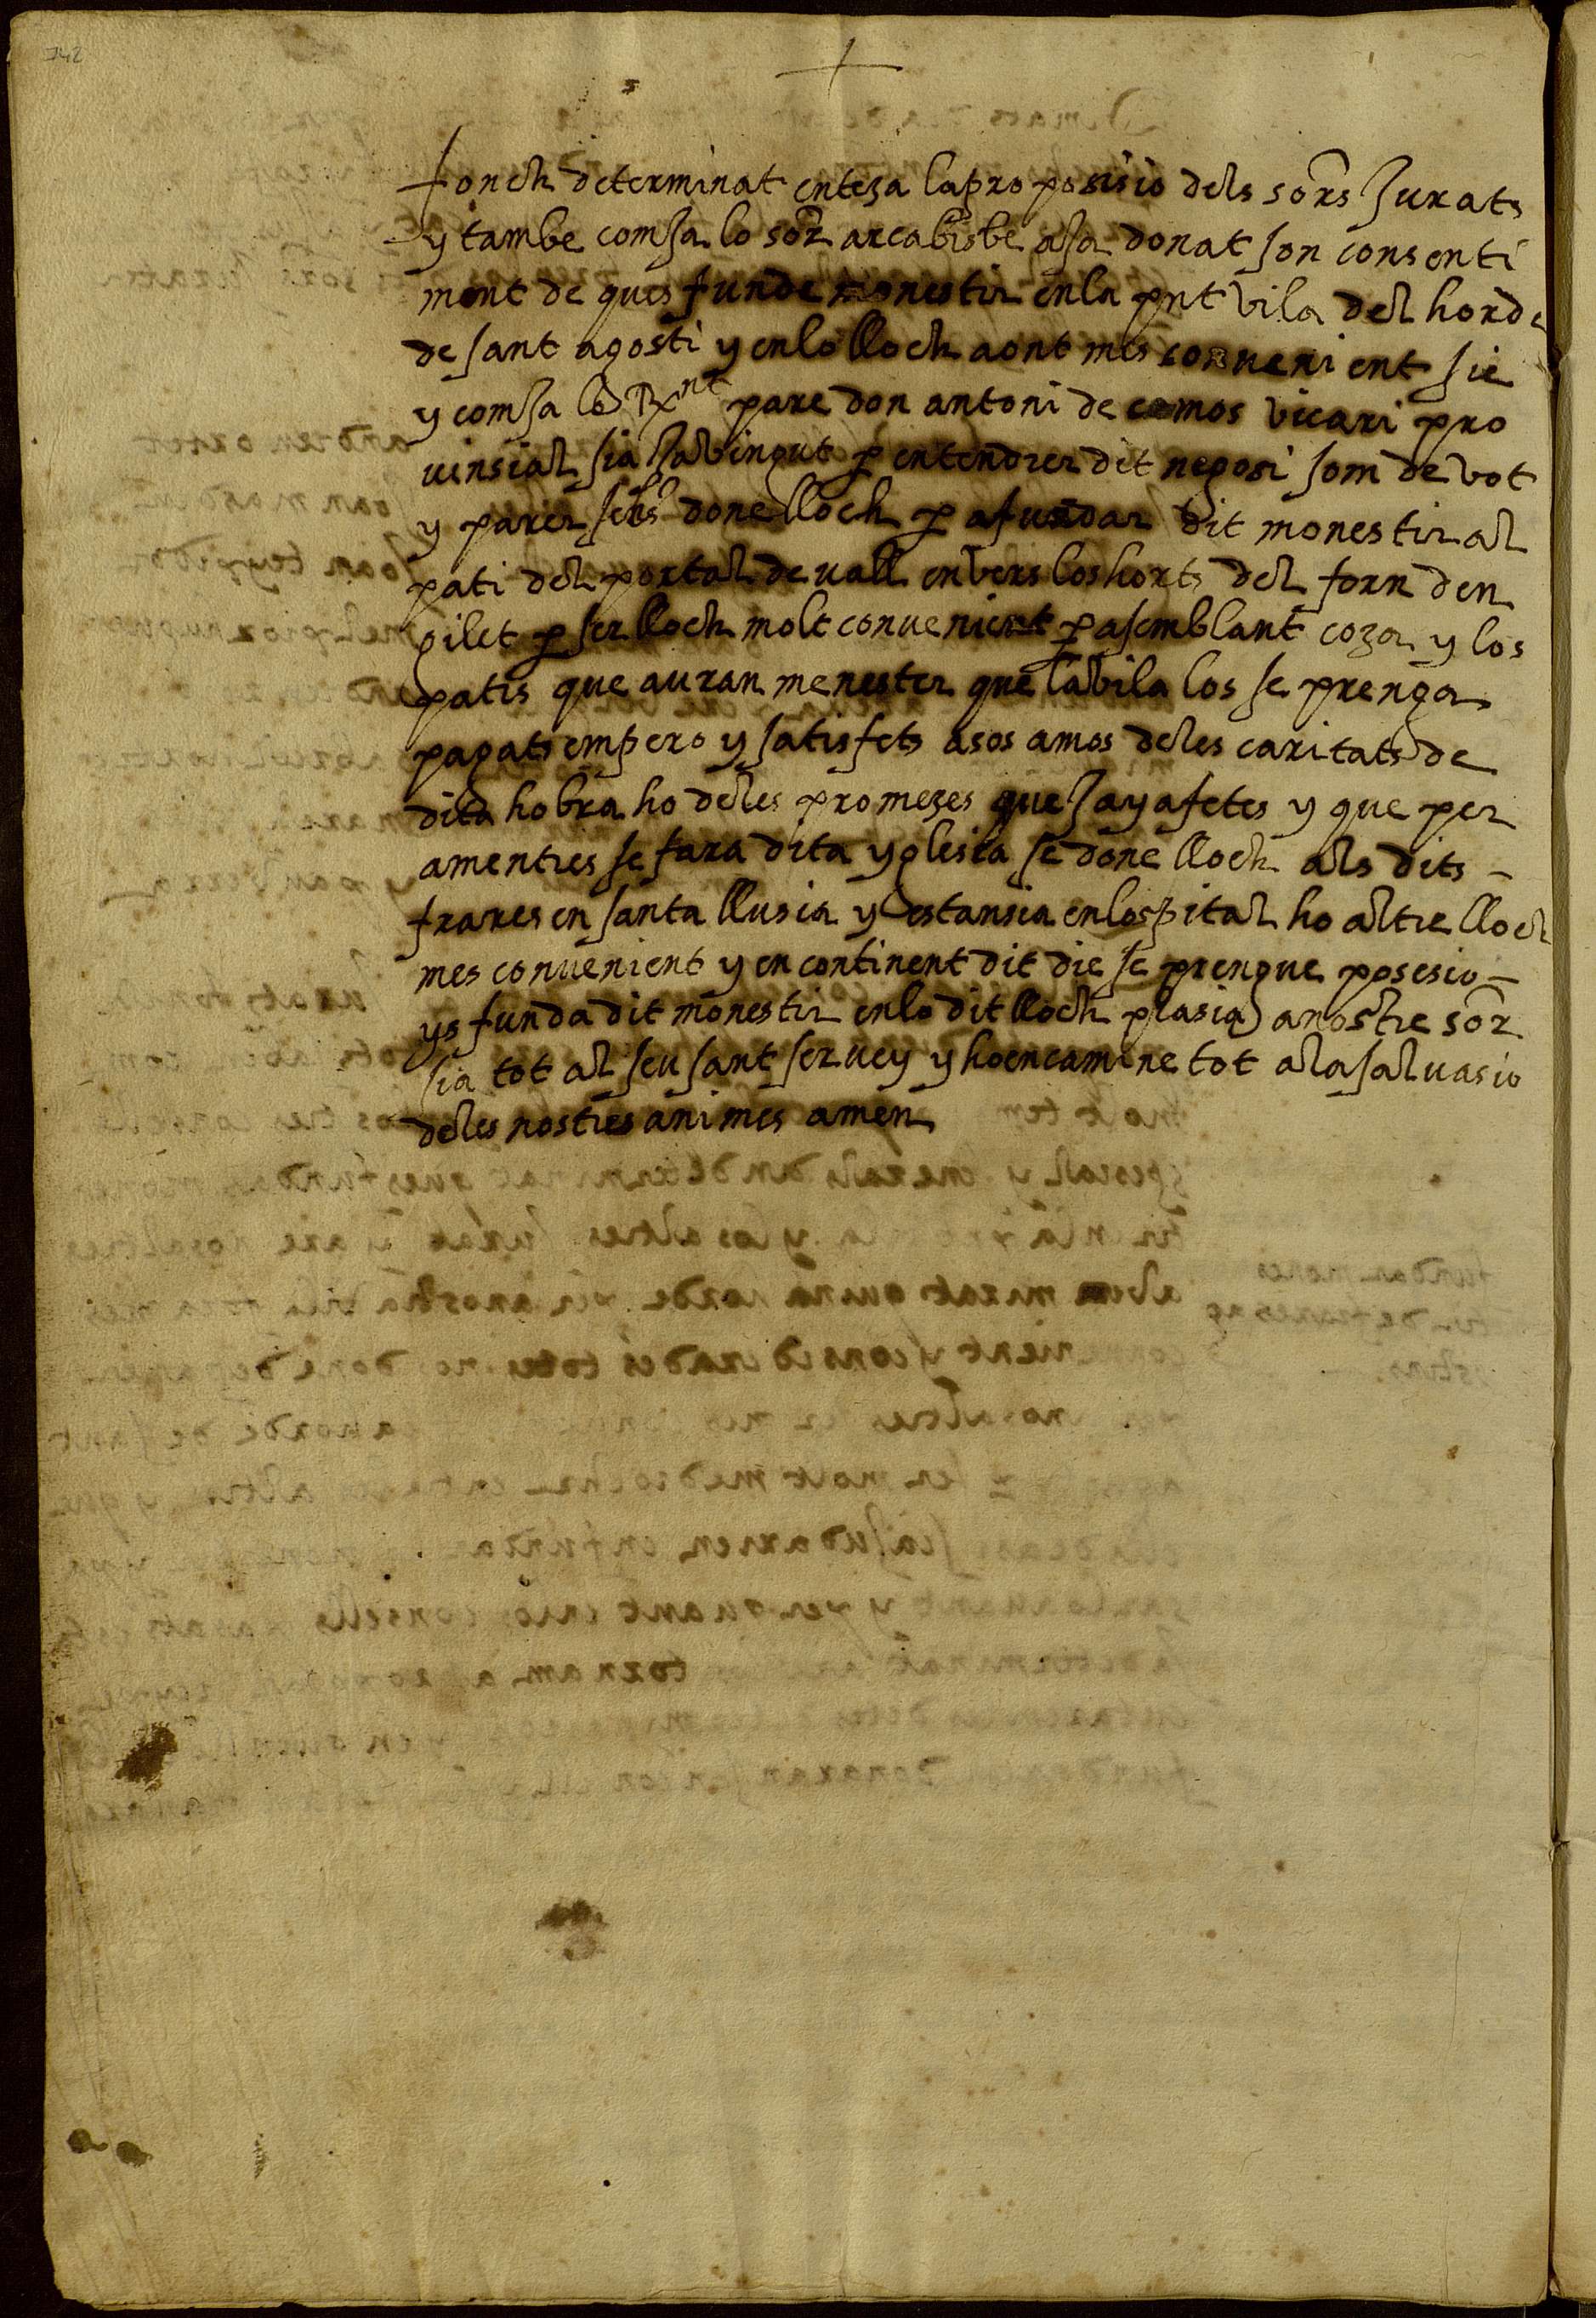 142
fonch determinat enteza la proposisio dels sors Jurats
y tambe com Ja lo sor arcabisbe a Ja donat son consenti
ment de ques funde monestir en la pnt vila del horde
de sant agosti y en lo lloch aont mes convenient sie
y com Ja lo Rnt pare don antoni de camos vicari pro
vinsial sia Ja vingut p entendrer dit negosi som de vot
y parer se done lloch p a fundar dit monestir al
pati del portal de vall envers los horts del forn den
pilet p ser lloch molt convenient p a semblant coza y los
patis que auran menester que la vila los se prenga
pagats empero y satisfets a sos amos de les caritats de
dita hobra ho de les promezes que Jay a fetes y que per
amentres se fara dita yglesia se done lloch als dits
frares en santa llusia y estansia en lospital ho altre lloch
mes convenient y en continent dit die se prengue posesio
ys funda dit monestir en lo dit lloch plasia a nostre sor
sia tot al seu sant servey y ho encamine tot a la salvasio
de les nostres animes amen